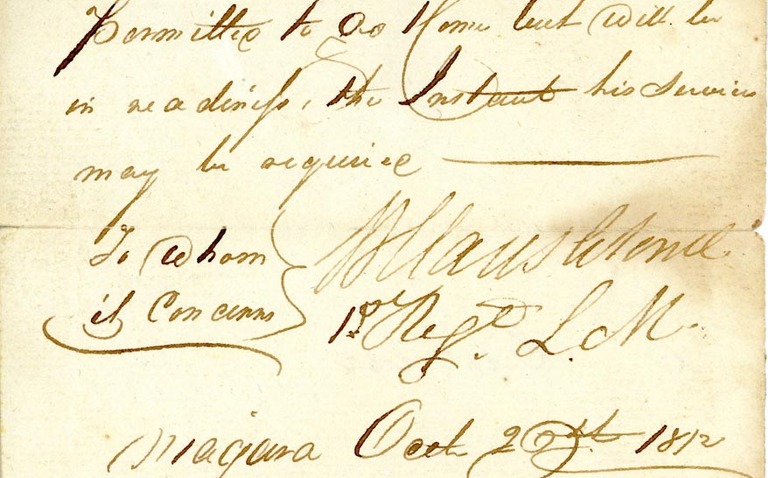 Permitted to Go Home but will be
in readiness, the Instant his Services
may be required
To Whom
it Concerns
W Claus Lt Conel.
1st Regt. L. M.
Niagara Octr 1812